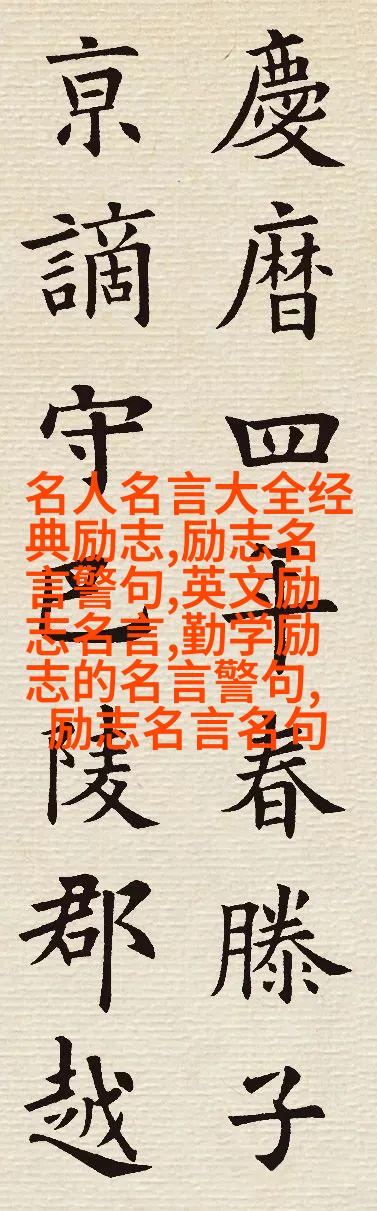 慶暦四年春滕子
亰謫守巴陵郡越
名人名言大全经
典励志,励志名
言警句,英文励
志名言,勤学励
志的名言警句,
励志名言名句